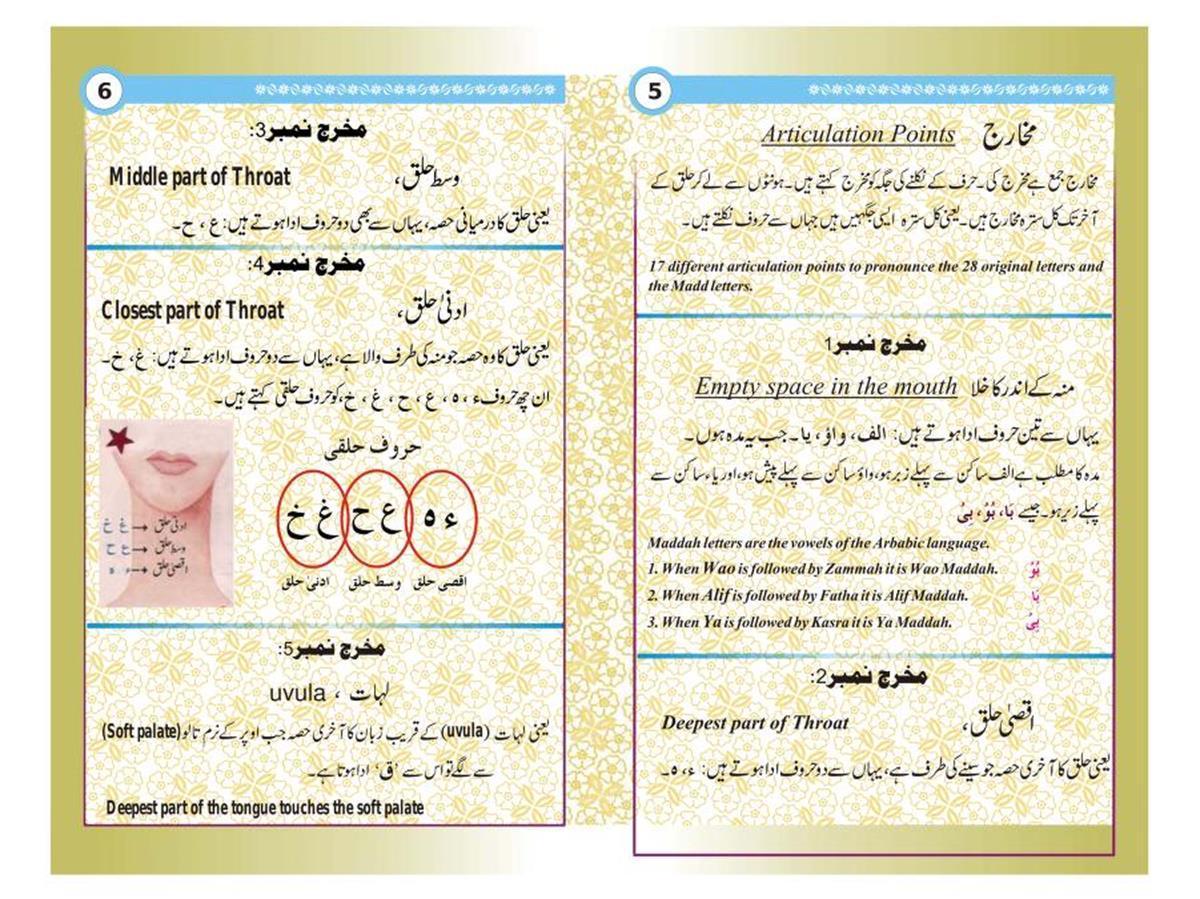 5
مخارج Articulation Points
مخارج جمع ہے مخرج کی۔ حرف کے نکلنے کی جگہ کو مخرج کہتے ہیں۔ ہونٹوں سے لے کر حلق کے
آخر تک کل سترہ مخارج ہیں۔ یعنی کل سترہ ایسی جگہیں ہیں جہاں سے حروف نکلتے ہیں۔
17 different articulation points to pronounce the 28 original letters and
the Madd letters.
مخرج نمبر1
منہ کے اندر کا خلا Empty space in the mouth
یہاں سے تین حروف ادا ہوتے ہیں: الف، واؤ، یا۔ جب یہ مدہ ہوں۔
مدہ کا مطلب ہے الف ساکن سے پہلے زبر ہو، واؤ ساکن سے پہلے پیش ہو، اور یاء ساکن سے
پہلے زیر ہو۔ جیسے بَا، بُوْ، بِیْ
Maddah letters are the vowels of the Arbabic language.
1. When Wao is followed by Zammah it is Wao Maddah. بُوْ
2. When Alif is followed by Fatha it is Alif Maddah. بَا
3. When Ya is followed by Kasra it is Ya Maddah. بِیْ
مخرج نمبر2:
اقصیٰ حلق، Deepest part of Throat
یعنی حلق کا آخری حصہ جو سینے کی طرف ہے، یہاں سے دو حروف ادا ہوتے ہیں: ء، ہ۔
6
مخرج نمبر3:
وسط حلق، Middle part of Throat
یعنی حلق کا درمیانی حصہ، یہاں سے بھی دو حروف ادا ہوتے ہیں: ع، ح۔
مخرج نمبر4:
ادنیٰ حلق، Closest part of Throat
یعنی حلق کا وہ حصہ جو منہ کی طرف والا ہے، یہاں سے دو حروف ادا ہوتے ہیں: غ، خ۔
ان چھ حروف ء، ہ، ع، ح، غ، خ، کو حروف حلقی کہتے ہیں۔
حروف حلقی
ء ہ ع ح غ خ
اقصی حلق وسط حلق ادنیٰ حلق
ادنیٰ حلق → غ خ
وسط حلق → ع ح
اقصیٰ حلق → ء ہ
مخرج نمبر5:
لہات، uvula
یعنی لہات (uvula) کے قریب زبان کا آخری حصہ جب اوپر کے نرم تالو (Soft palate)
سے لگے تو اس سے ’ق‘ ادا ہوتا ہے۔
Deepest part of the tongue touches the soft palate